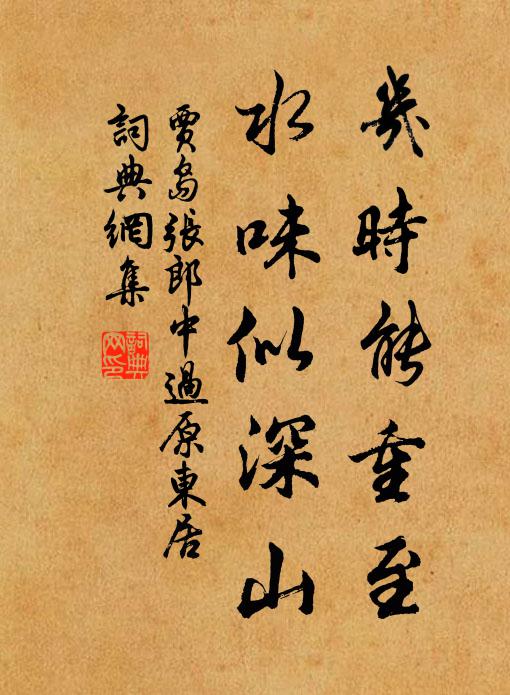 幾時能重至
水味似深山
賈島張郎中過原東居
詞典網集
詞典網印